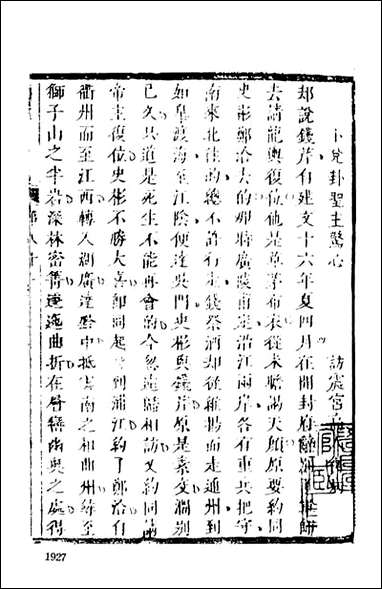 卜兌卦聖主驚心　訪震宮
却說錢芹自建文十六年夏四月在開封府
去請龍輿復位他是草茅布衣從未瞻謁天顏原要約同
史彬鄭洽去的那時廣陵南是沿江兩岸各有重兵把守
南來北往的總不許行走錢祭酒却從維揚而走通州到
如皐渡海至江陰便達吳門史彬與錢芹原是素交濶別
已久只道是死生不能再會的今忽遠歸相訪又約同謁
帝主復位史彬不勝大喜卽同起身到浦江約了鄭洽自
衢州而至江西轉入湖廣達黔中抵雲南之和曲州緣至
獅子山之半岩深林密箐逶迤曲折在層巒幽奧之處得
1927